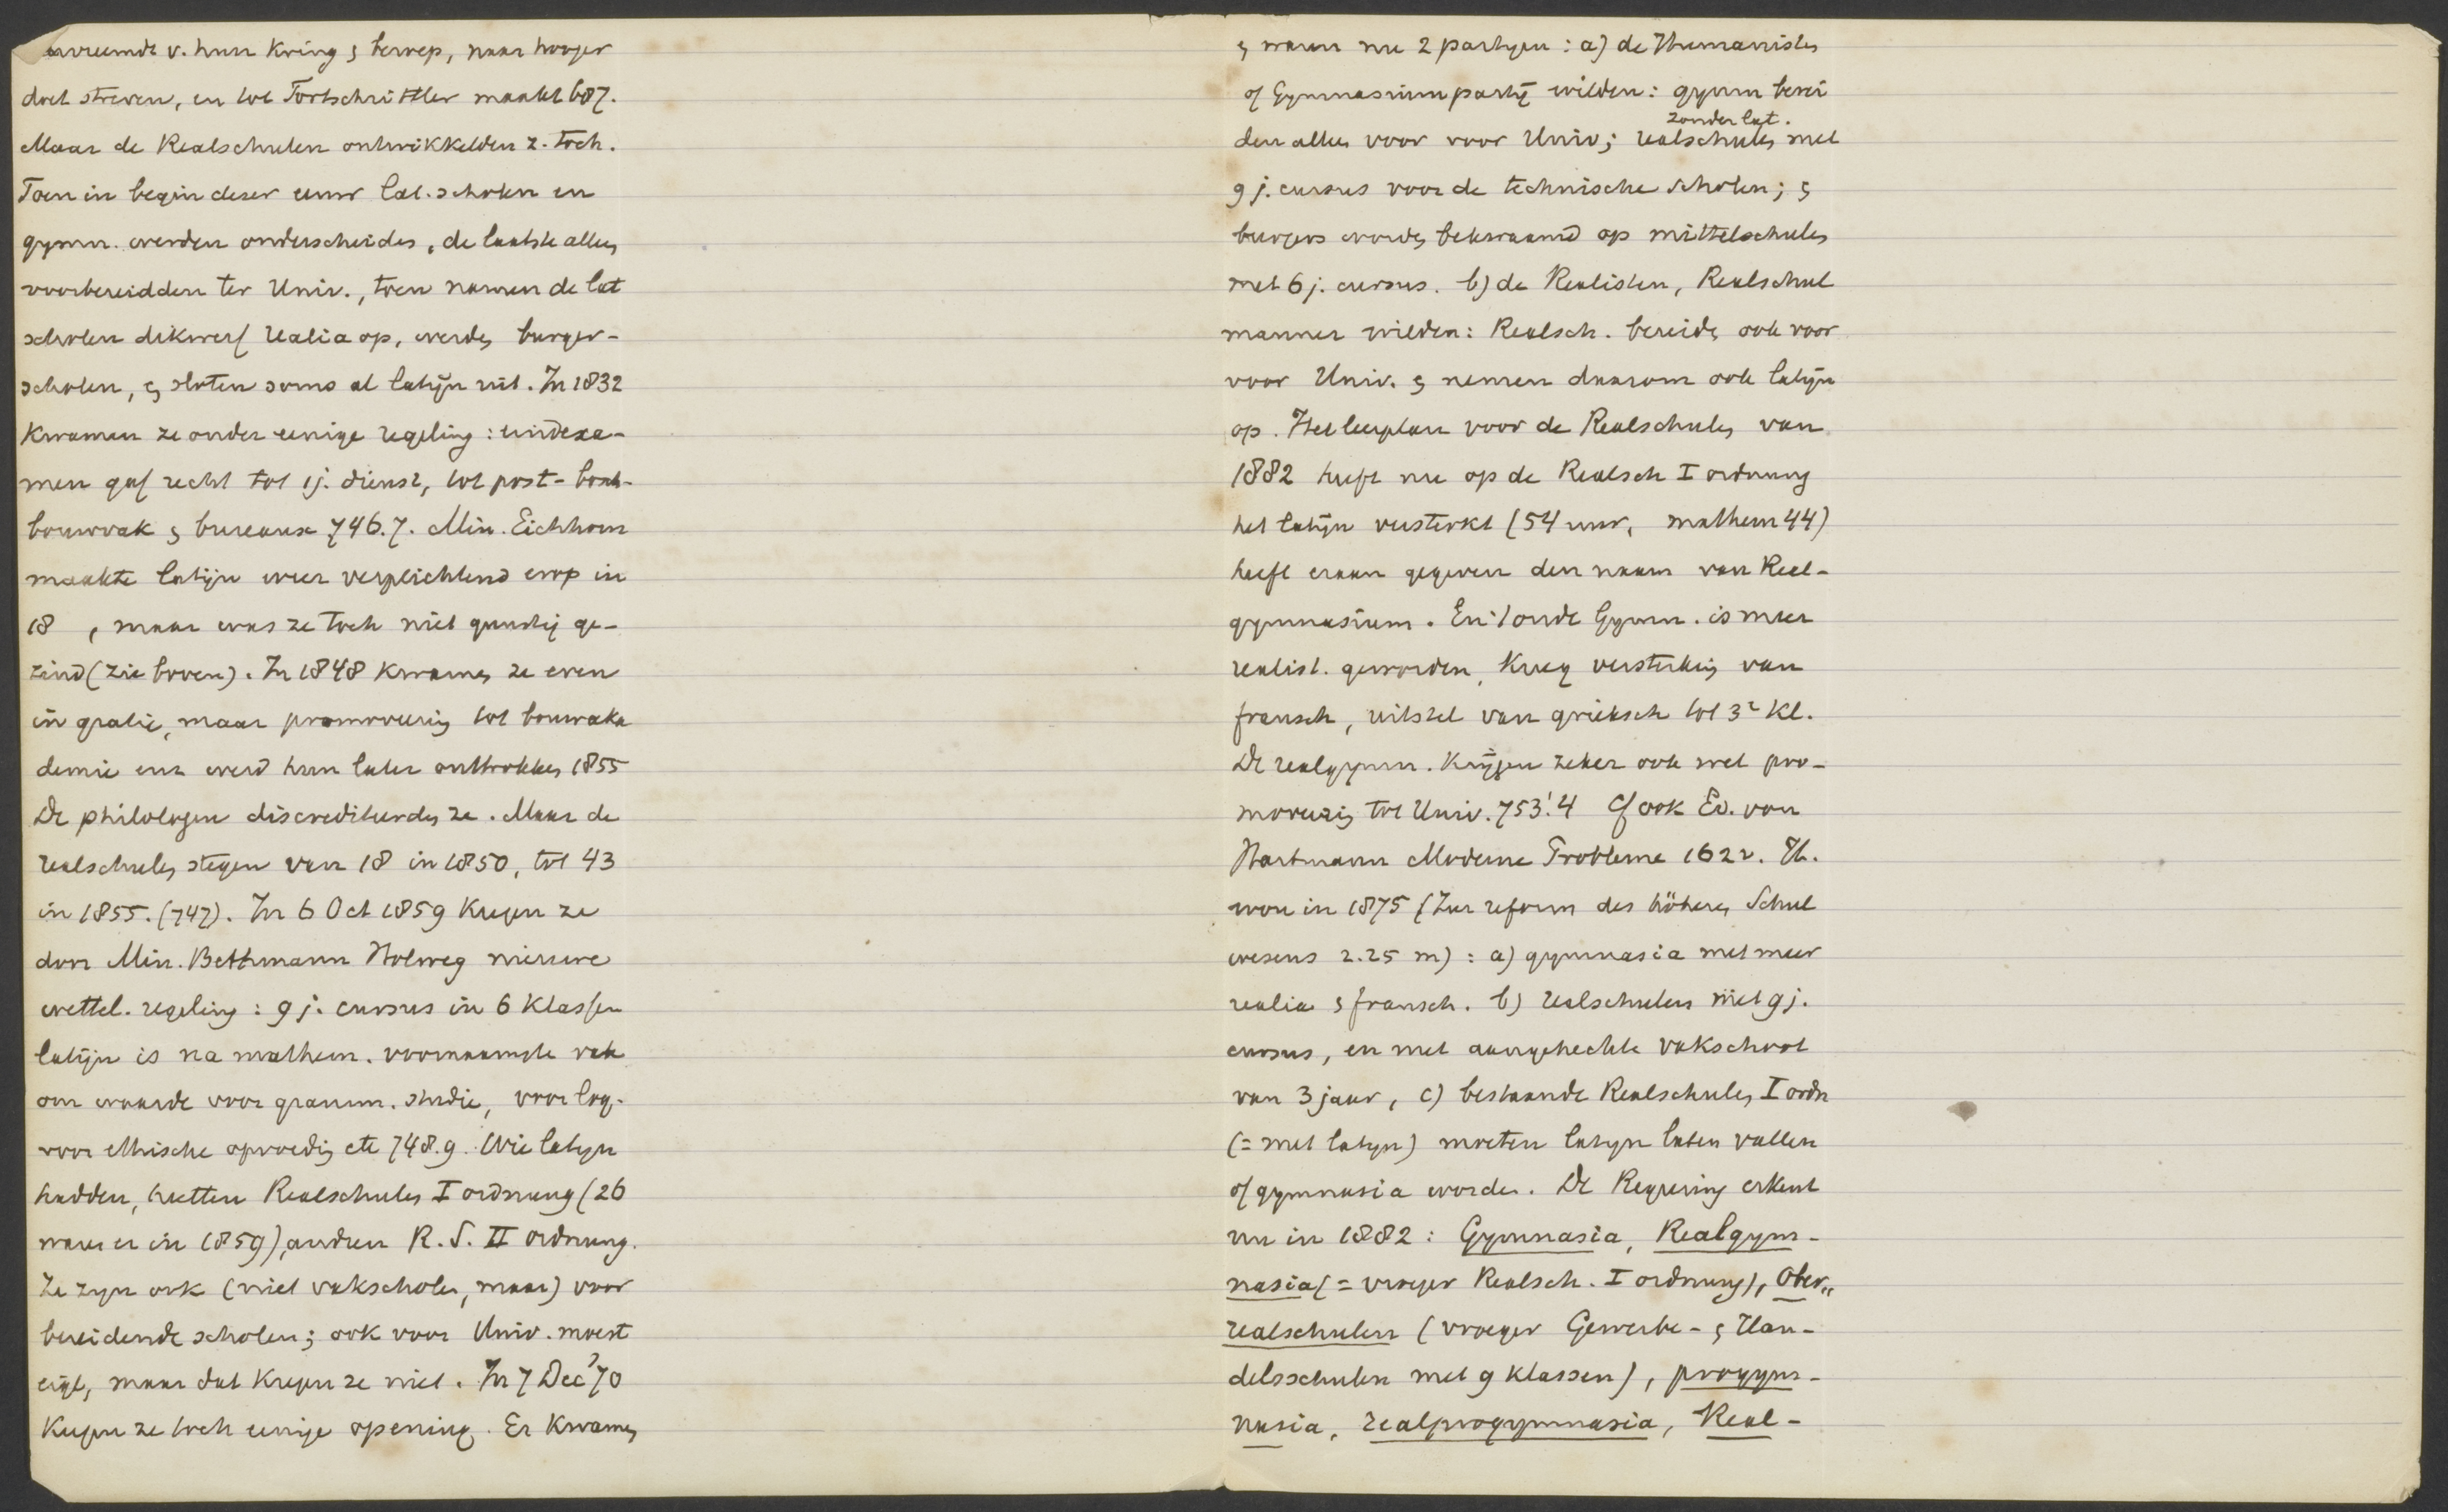 vreemdt v. hun kring & beroep, naar hooger
doet streven, en tot Fortschrittler maakt 687.
Maar de Realschulen ontwikkelden z. toch.
Toen in begin dezer eeuw lat. scholen en
gymn. werden onderscheiden, de laatste alleen
voorbereidden ter Univ., toen namen de lat
scholen dikwerf realia op, werden burger-
scholen, & sloten soms al latijn uit. In 1832
kwamen ze onder eenige regeling: eindexa-
men gaf recht tot 1j. dienst, tot post- bosch-
bouwvak & bureaux 746.7. Min. Eichhorn
maakte latijn weer verplichtend erop in
18 , maar was ze toch niet gunstig ge-
zind (zie boven). In 1848 kwamen ze even
in gratie, maar promoveering tot bouwaka
demie enz werd hun later onttrokken 1855
De philologen discrediteerden ze. Maar de
realschulen stegen van 18 in 1850, tot 43
in 1855. (747). In 6 Oct 1859 kregen ze
door Min. Bethmann Holweg nieuwe
wettel. regeling: 9 j. cursus in 6 klassen
latijn is na mathem. voornaamste vak
om waarde voor gramm. studie, voor log.
voor ethische opvoeding etc 748.9. Wie latijn
hadden, heetten Realschulen I ordnung (26
waren er in 1859), andren R.S. II ordnung.
Ze zijn ook (niet vakscholen, maar) voor
bereidende scholen; ook voor Univ. moest
eigl, maar dat kregen ze niet. In 7 Dec '70
kregen ze toch eenige opening. Er kwamen
& waren nu 2 partijen: a) de Humanisten
of Gymnasiumpartij wilden: gymn berei
zonder lat.
den alleen voor voor Univ; realschulen met
9 j. cursus voor de technische scholen; &
burgers worden bekwaamd op mittelschulen
met 6 j. cursus. b) de Realisten, Realschul
manner wilden: Realsch. bereiden ook voor
voor Univ. & nemen daarom ook latijn
op. Het leerplan voor de Realschulen van
1882 heeft nu op de Realsch I ordnung
het latijn versterkt (54 uur, mathem 44)
heeft eraan gegeven den naam van Real-
gymnasium. En 't oude Gymn. is meer
realist. geworden, kreeg versterking van
fransch, uitstel van grieksch tot 3e kl.
De realgymn. krijgen zeker ook wel pro-
moveering tot Univ. 753!4 Cf ook Ed. von
Hartmann Moderne Probleme 162 v. H.
wou in 1875 (Zur reform des höheren Schul
wesens 2.25 m): a) gymnasia met meer
realia & fransch. b) realschulen met 9 j.
cursus, en met aangehechte vakschool
van 3 jaar, c) bestaande Realschulen I ordn
(= met latijn) moeten latijn laten vallen
of gymnasia worden. De Regeering erkent
nu in 1882: Gymnasia, Realgym-
nasia (= vroeger Realsch. I ordnung), Ober-
realschulen (vroeger Gewerbe- & Han-
delsschulen met 9 klassen), progym-
nasia, realprogymnasia, Real-